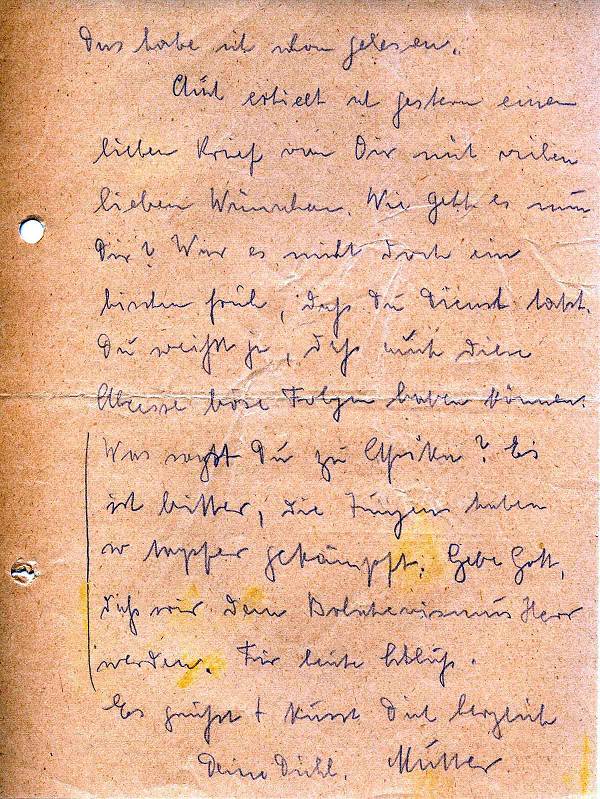 Das habe ich schon gelesen.
Auch erhielt ich gestern einen
lieben Brief von Dir mit vielen
lieben Wünschen. Wie geht es nun
Dir? War es nicht doch ein
bischen früh, daß Du Dienst hast.
Du weißt ja, daß auch diese
böse Folgen haben können.
Was sagst Du zu Afrika? Es
ist bitter, die Jungens haben
so tapfer gekämpft. Gebe Gott,
daß wir dem Bolschewismus Herr
werden. Für heute Schluß.
Es grüßt + küsst Dich herzlich
Deine Mutter.